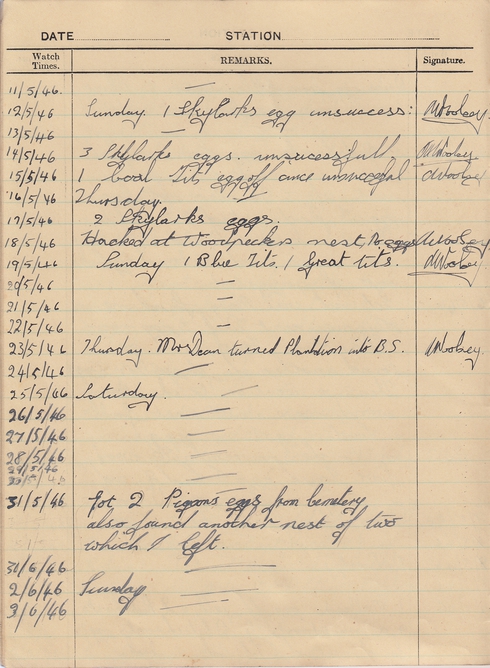 DATE STATION
Watch Times. REMARKS. Signature.
11/5/46. —
12/5/46 Sunday. 1 Skylarks egg unsuccess: Woolsey
13/5/46 —
14/5/46 3 Skylarks eggs. unsucessfull Woolsey
15/5/46 1 Coal Tits egg off Woolsey
16/5/46 Thursday.
17/5/46 2 Skylarks eggs.
18/5/46 Hacked at Woodpeckers nest, No eggs Woolsey
19/5/46 Sunday 1 Blue Tits. 1 Great tits. Woolsey
20/5/46 —
21/5/46 —
22/5/46 —
23/5/46 Thursday. Mrs Dean turned Plantation into B.S. Woolsey.
24/5/46 —
25/5/46 Saturday.
26/5/46 —
27/5/46 —
28/5/46 —
29/5/46 —
31/5/46 Got 2 Pigeons eggs from Cemetery
also found another nest of two
which I left.
2/6/46 Sunday